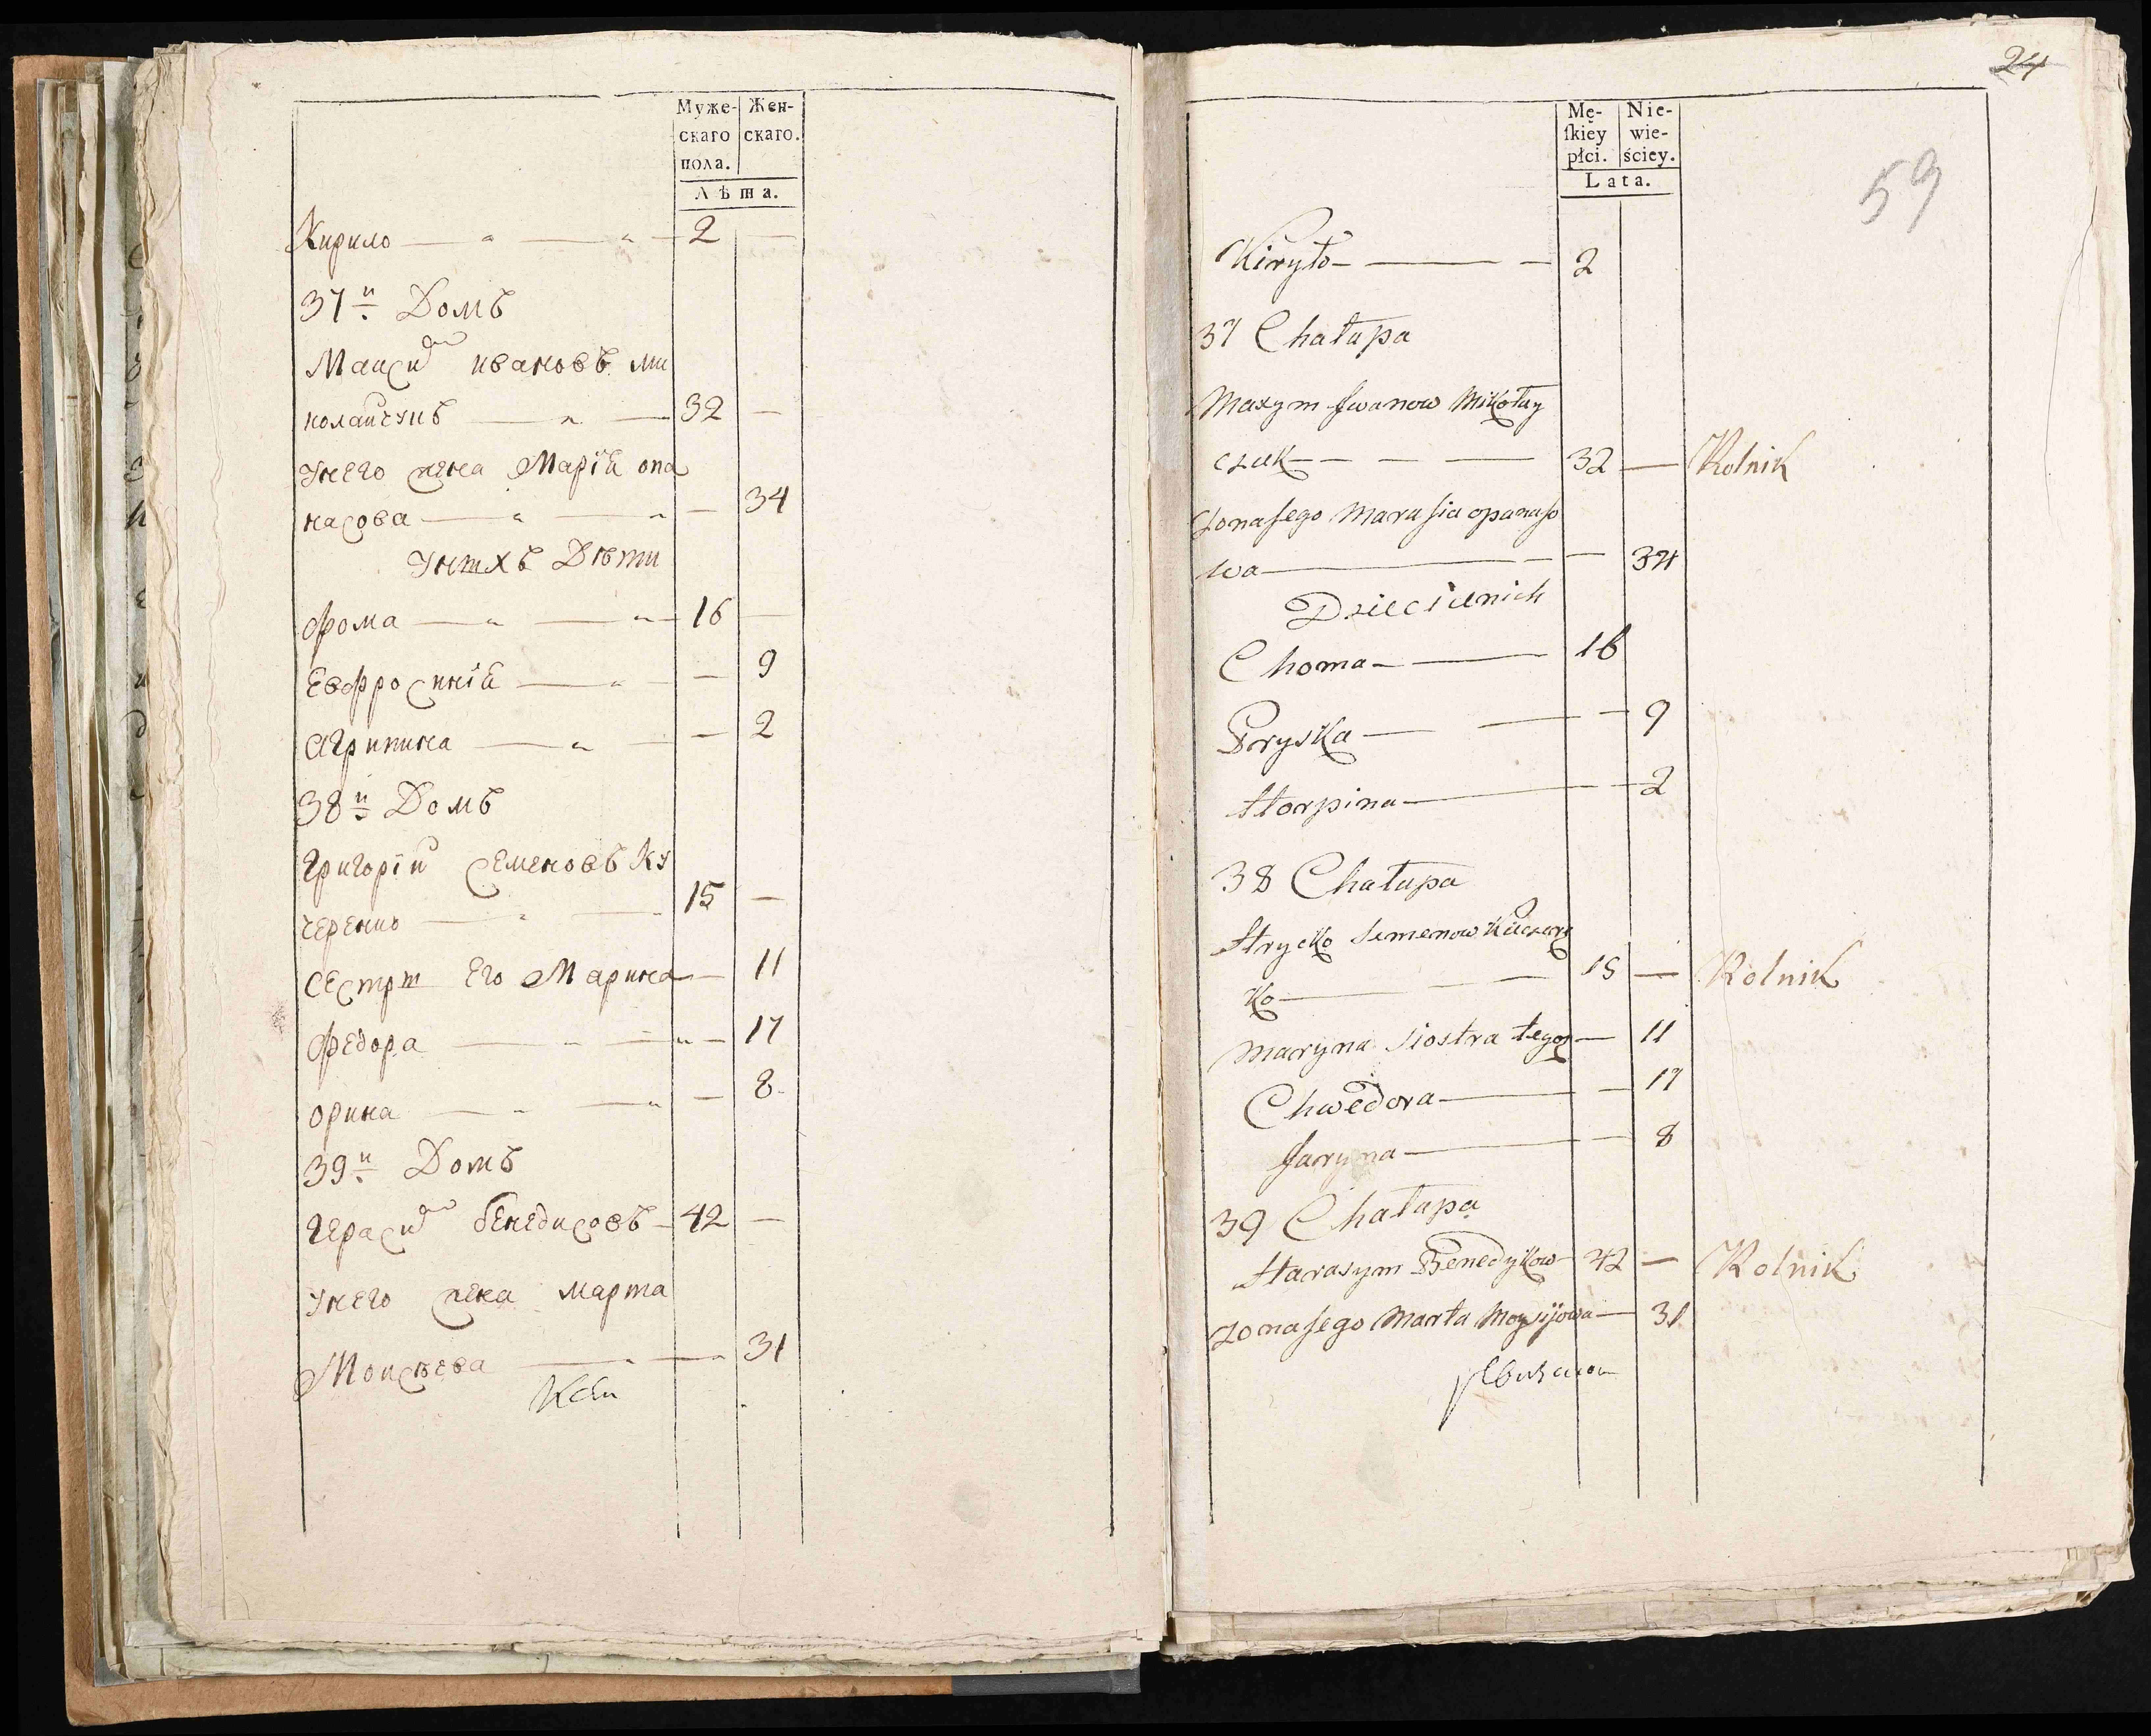 Муже- Жен-
скаго скаго.
пола.
Лѣта.
Кирило 2 —
37й Домъ
Маисим ивановъ ми
колайчукъ 32 —
Унего жена Марія опа
насова — 34
Унихъ Дѣти
Фома 16 —
Евфросинія — 9
Агрипина — 2
38й Домъ
Григорій Семеновъ Ку
черенко 15 —
Сестри Его Марина — 11
Федора — 17
Орина — 8
39й Домъ
Герасим бенедисовъ 42 —
Унего жена марта
Моисѣева — 31
24
59
Mę- Nie-
ſkiey wie-
płci. ściey.
Lata.
Kiryło 2
37 Chałupa
Maxym Jwanow Mikołay
czuk 32 — Rolnik
Zonaſego Maruſia opanaſo
wa — 34
Dzieci unich
Choma 16
Pryska — 9
Horpina — 2
38 Chałupa
Hrycko Semenow Kuczery
ko 15 — Rolnik
Maryna siostra tegoz — 11
Chwedora — 17
Jaryna — 8
39 Chałupa
Harasym Benedykow 42 — Rolnik
Zonaſego Marta Moysijowa — 31